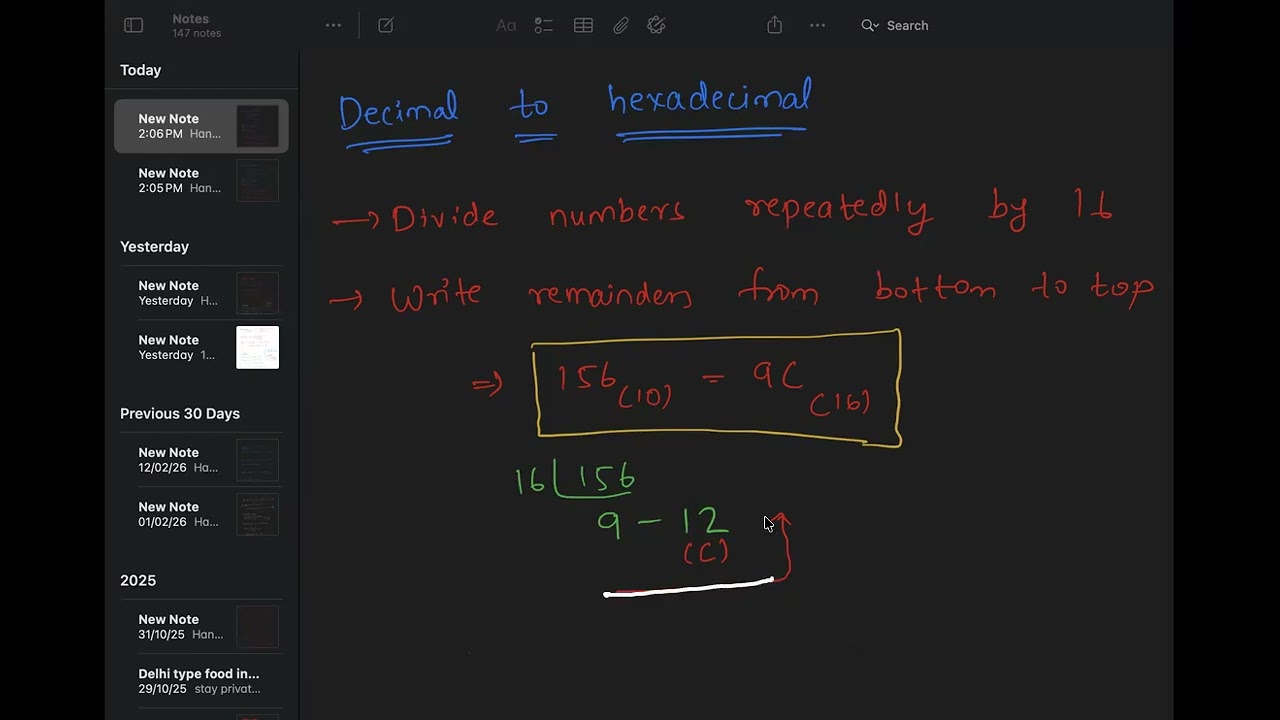 Notes
147 notes
Search
Today
New Note
2:06 PM Han...
New Note
2:05 PM Han...
Yesterday
New Note
Yesterday H...
New Note
Yesterday 1...
Previous 30 Days
New Note
12/02/26 Ha...
New Note
01/02/26 Ha...
2025
New Note
31/10/25 Han...
Delhi type food in...
29/10/25 stay privat...
Decimal to hexadecimal
→ Divide numbers repeatedly by 16
→ Write remainders from bottom to top
⇒ 156(10) = 9C(16)
16 156
9 - 12
(C)